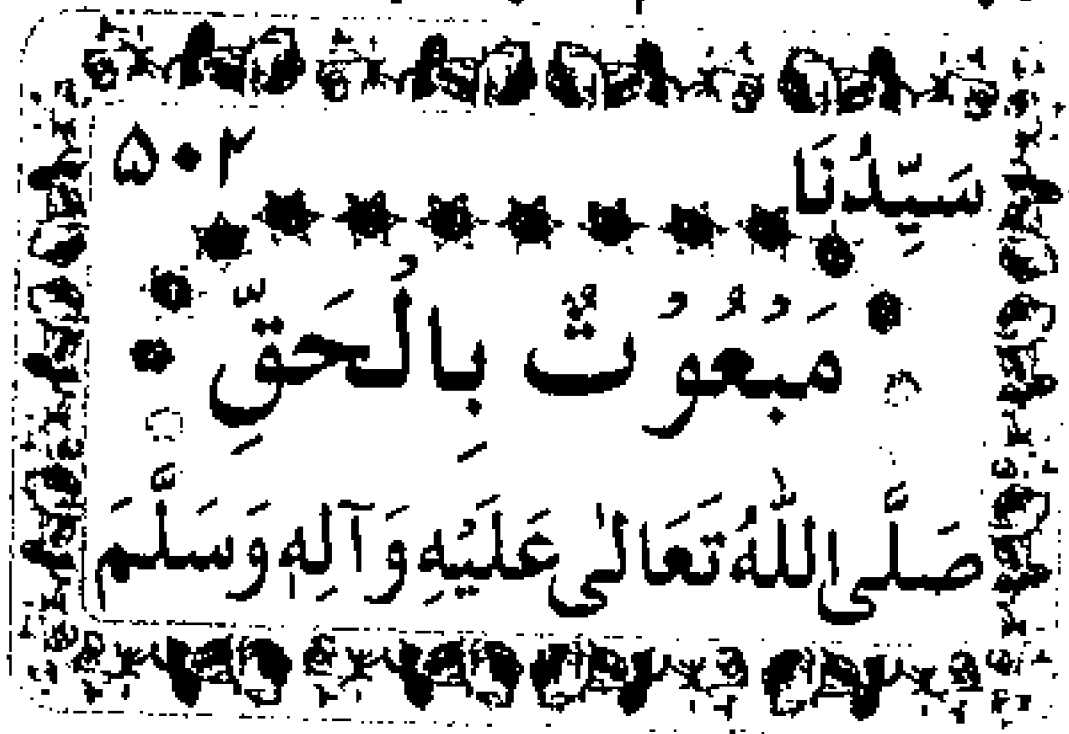 سَيِّدُنَا ۵۰۲
مَبْعُوْثٌ بِالْحَقِّ
صَلَّى اللّٰهُ تَعَالىٰ عَلَيْهِ وَآلِهٖ وَسَلَّمَ